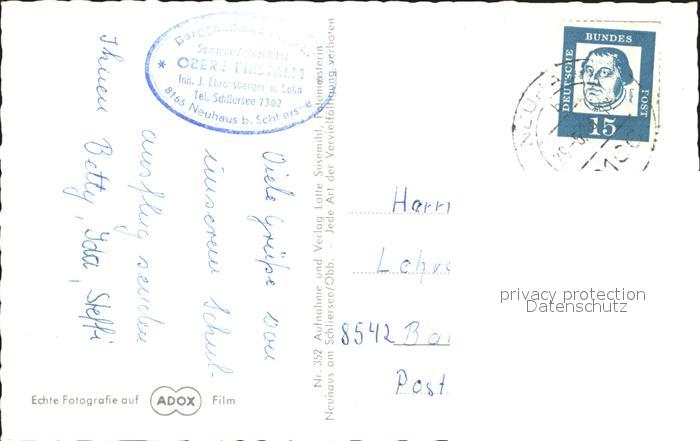 Viele Grüße von
unserem Schul-
ausflug senden
Ihnen Betty, Ida, Steffi
OBERE FIRSTALM
Inh. J. Ehrensberger u. Sohn
Tel. Schliersee 7302
8165 Neuhaus b. Schliersee
Nr. 352 Aufnahme und Verlag Lotte Susemihl, Fotomeisterin
Neuhaus am Schliersee/Obb. - Jede Art der Vervielfältigung verboten
DEUTSCHE BUNDESPOST
15
Luther
Harr
Lehre
8542 Ba
Post
privacy protection
Datenschutz
Echte Fotografie auf ADOX Film